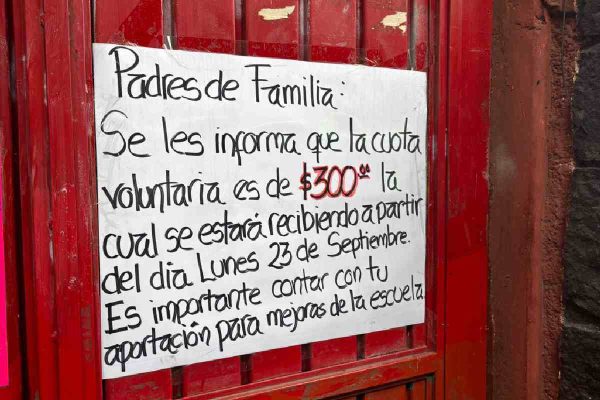 Padres de Familia:
Se les informa que la cuota
voluntaria es de $300.00 la
cual se estará recibiendo a partir
del dia Lunes 23 de Septiembre.
Es importante contar con tu
aportación para mejoras de la escuela